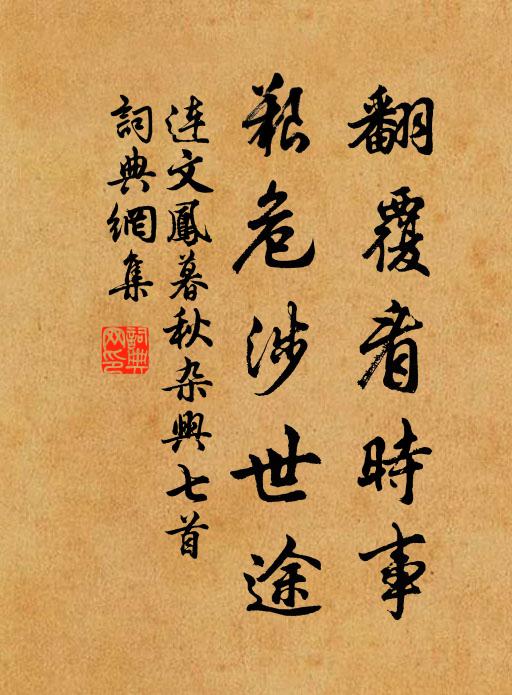 翻覆看時事
艱危涉世途
连文鳳暮秋杂興七首
詞典網集
詞典网印